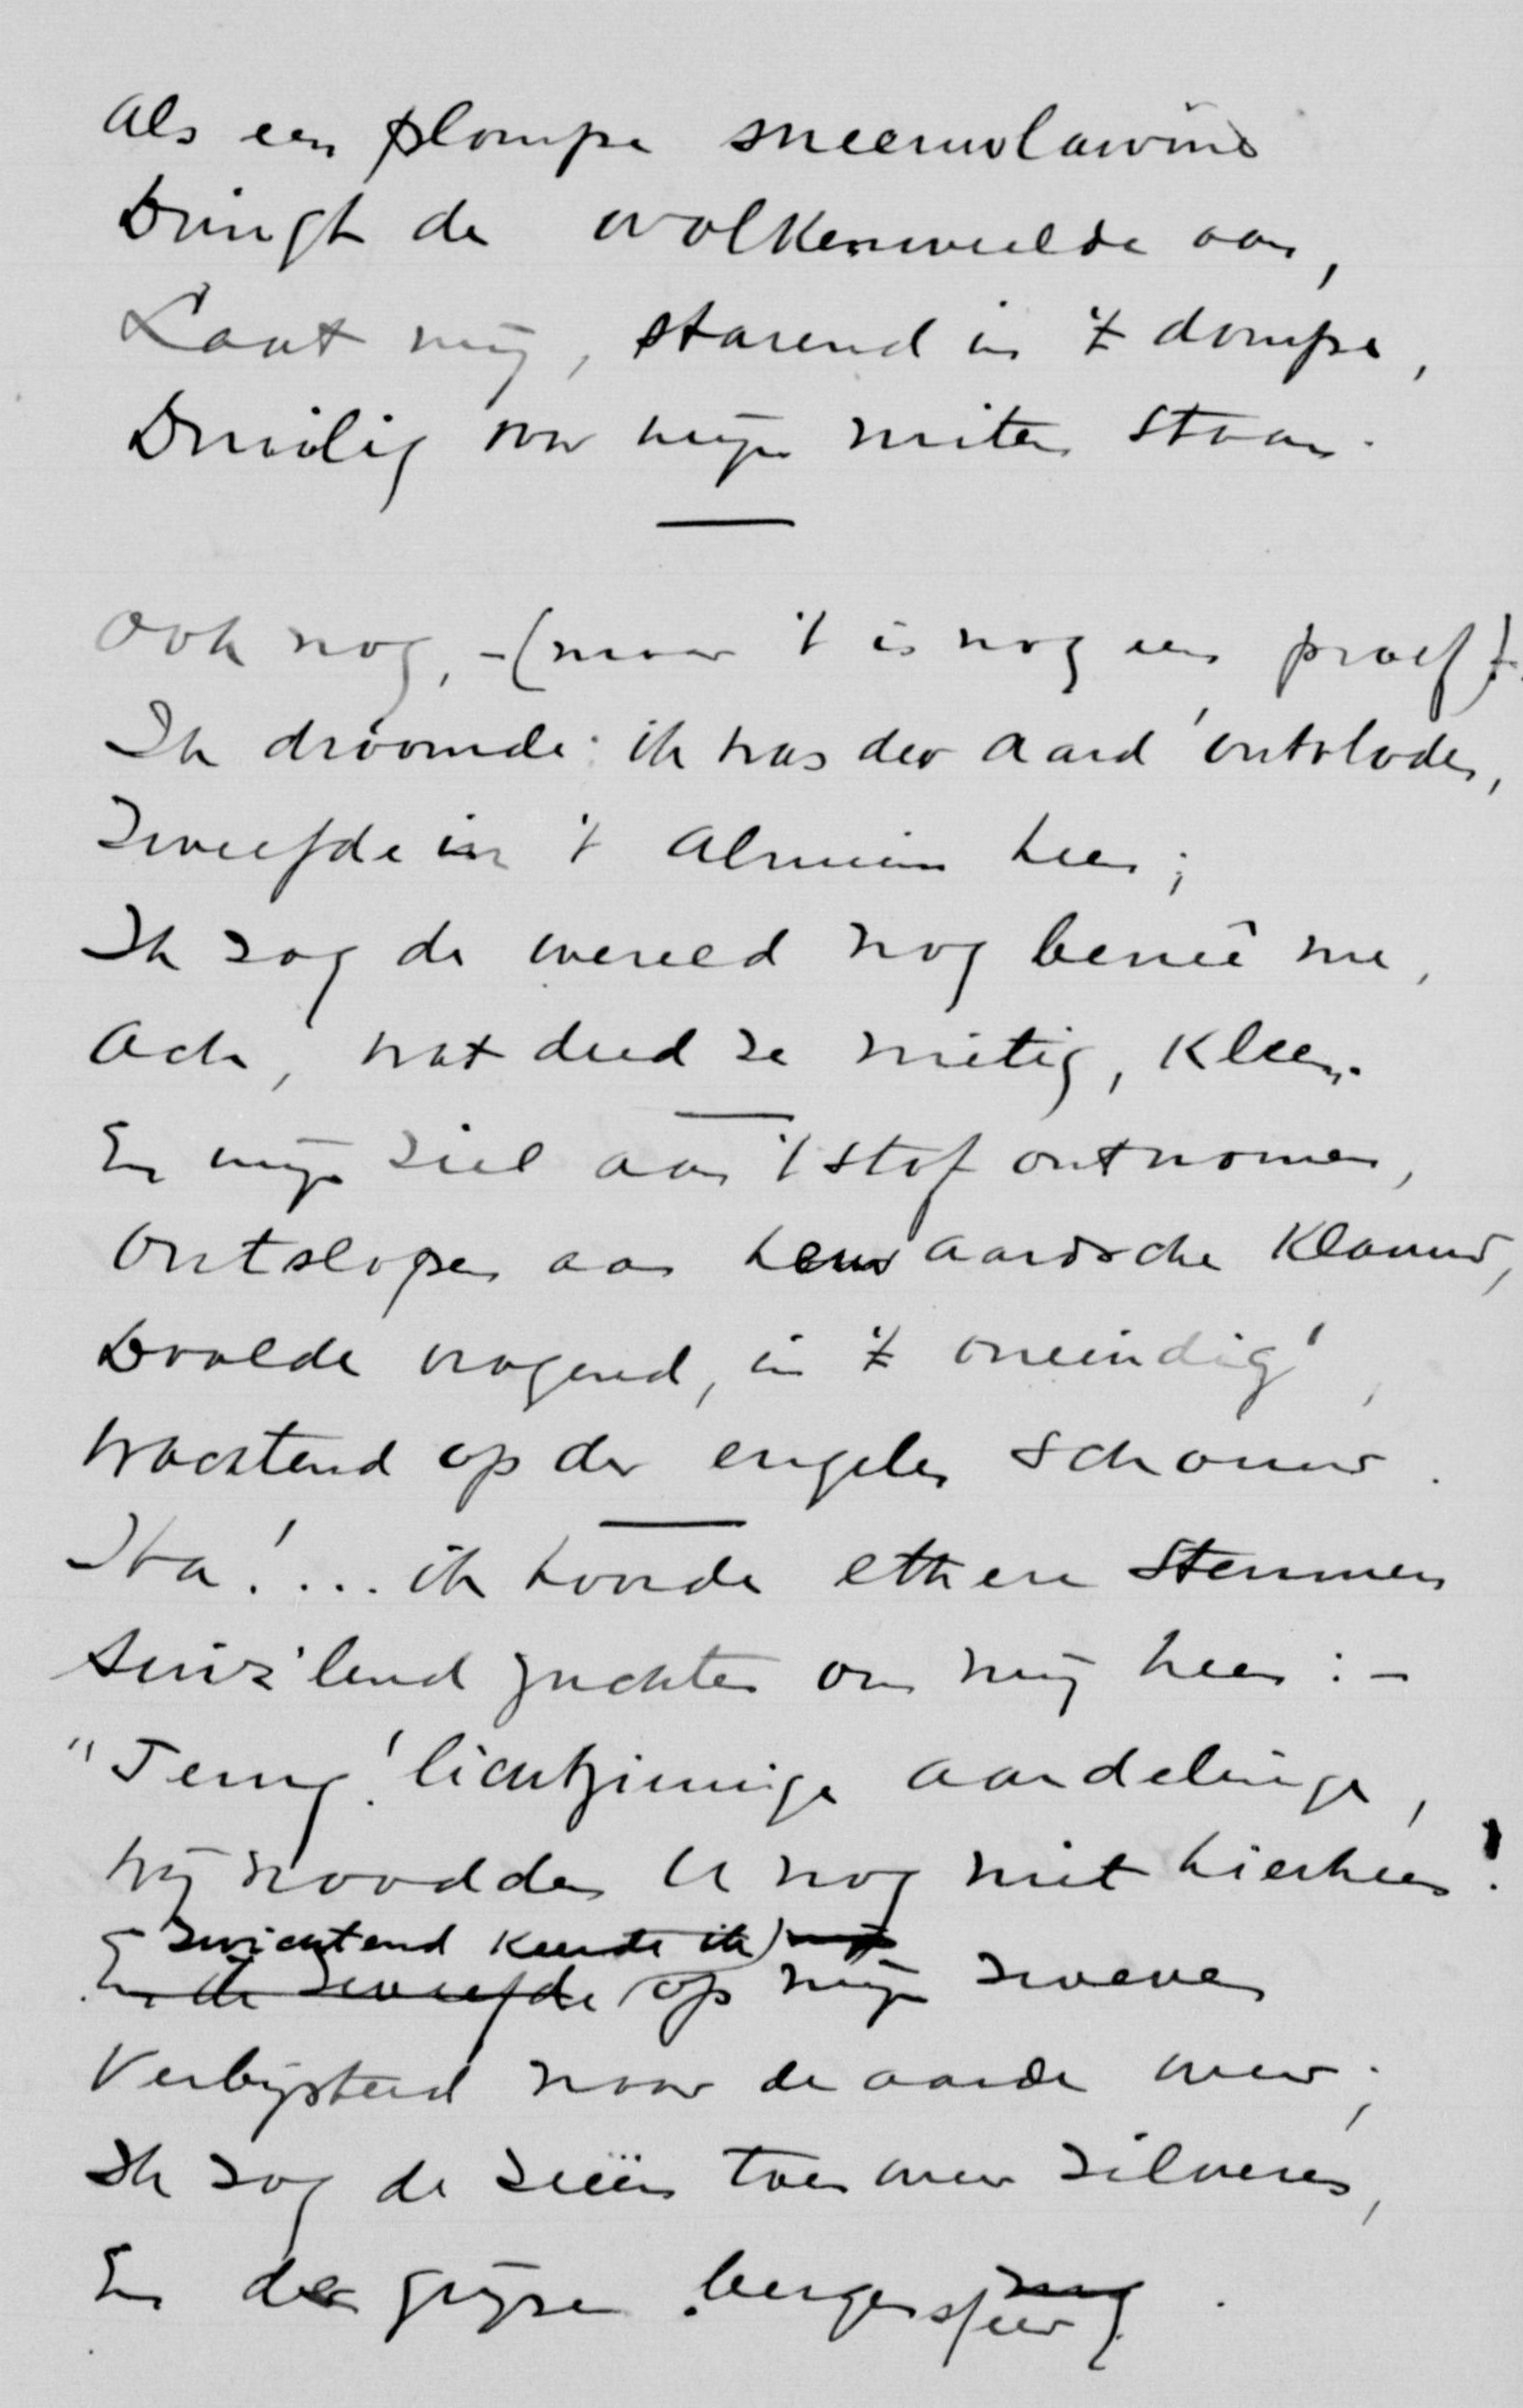 Als een plompe sneeuwlawine
Dringt de wolkenweelde aan,
Laat mij, starend in 't dompe,
Druilig voor mijn ruiten staan.
Ook nog, - (maar 't is nog een proef).
Ik droomde: ik was der aard' ontvloden,
Zweefde in 't Alruim heen;
Ik zag de wereld nog beneê me,
Ach, wat deed ze nietig, kleen.
En mijn ziel aan 't stof ontnomen,
Ontslopen aan heur aardsche klauw,
Doolde vragend, in 't oneindig',
Wachtend op der engelen schouw.
Ha! ... ik hoorde ethere stemmen
Suiz'lend zuchten om mij heen: -
"Terug! lichtzinnige aardelinge,
Wij noodden U nog niet hierheen!
zwichtend keerde ik
En ik zweefde op mijn zweven
Verbijsterd naar de aarde weer;
Ik zag de zeeën toen weer zilveren,
En der grijze bergen sfeer.